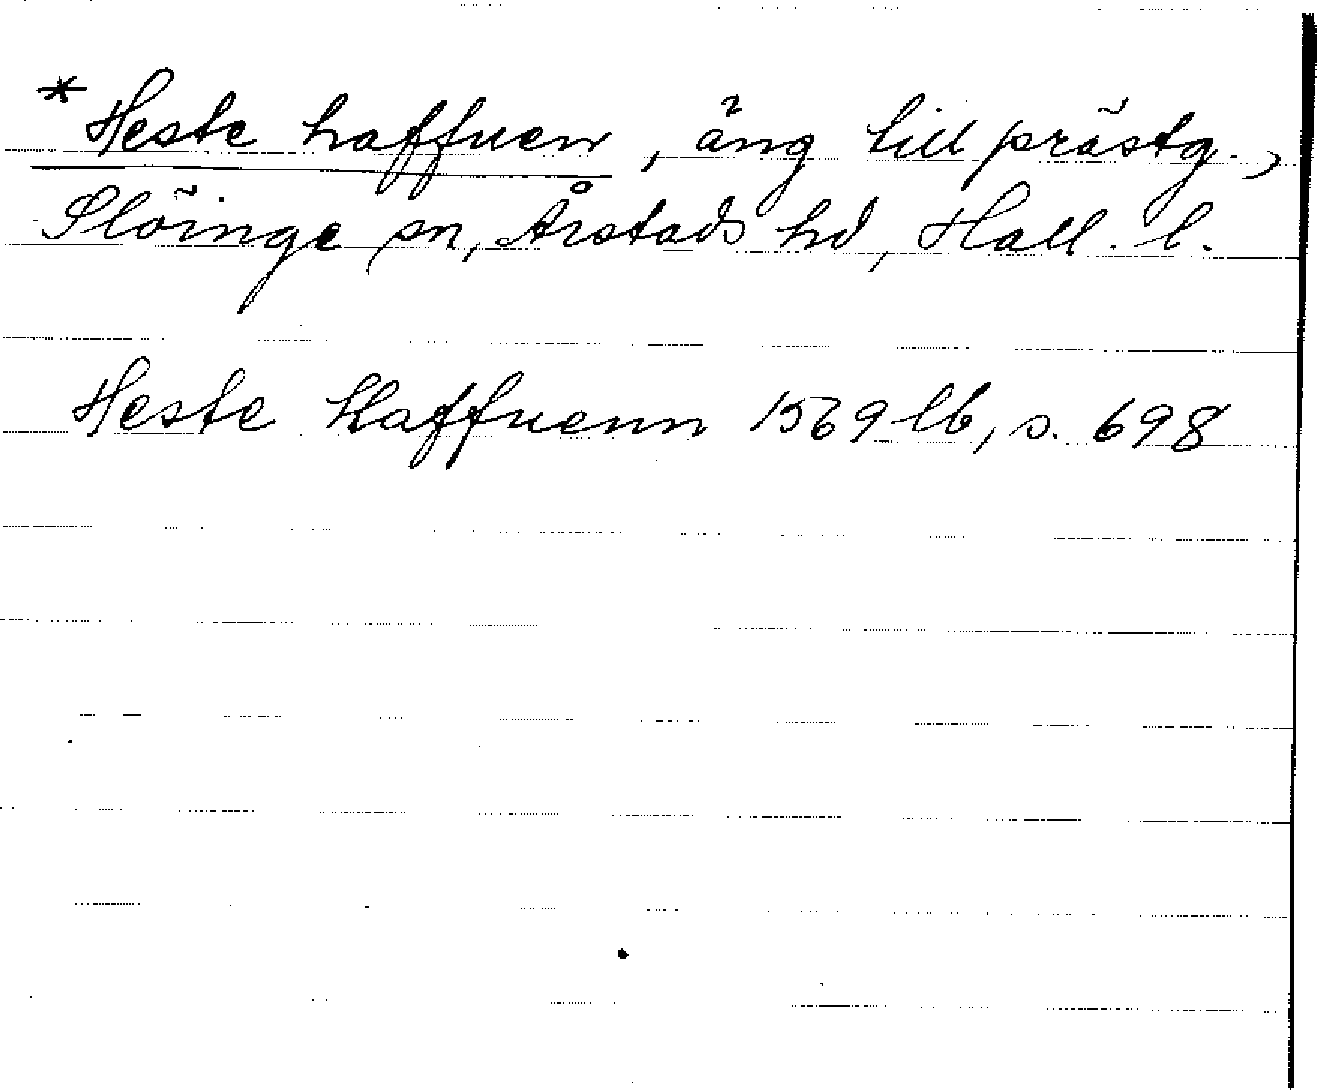 *Heste haffuen, äng till prästg.,
Slöinge sn, Årstads hd, Hall. l.
Heste Haffuenn 1569 lb, s. 698